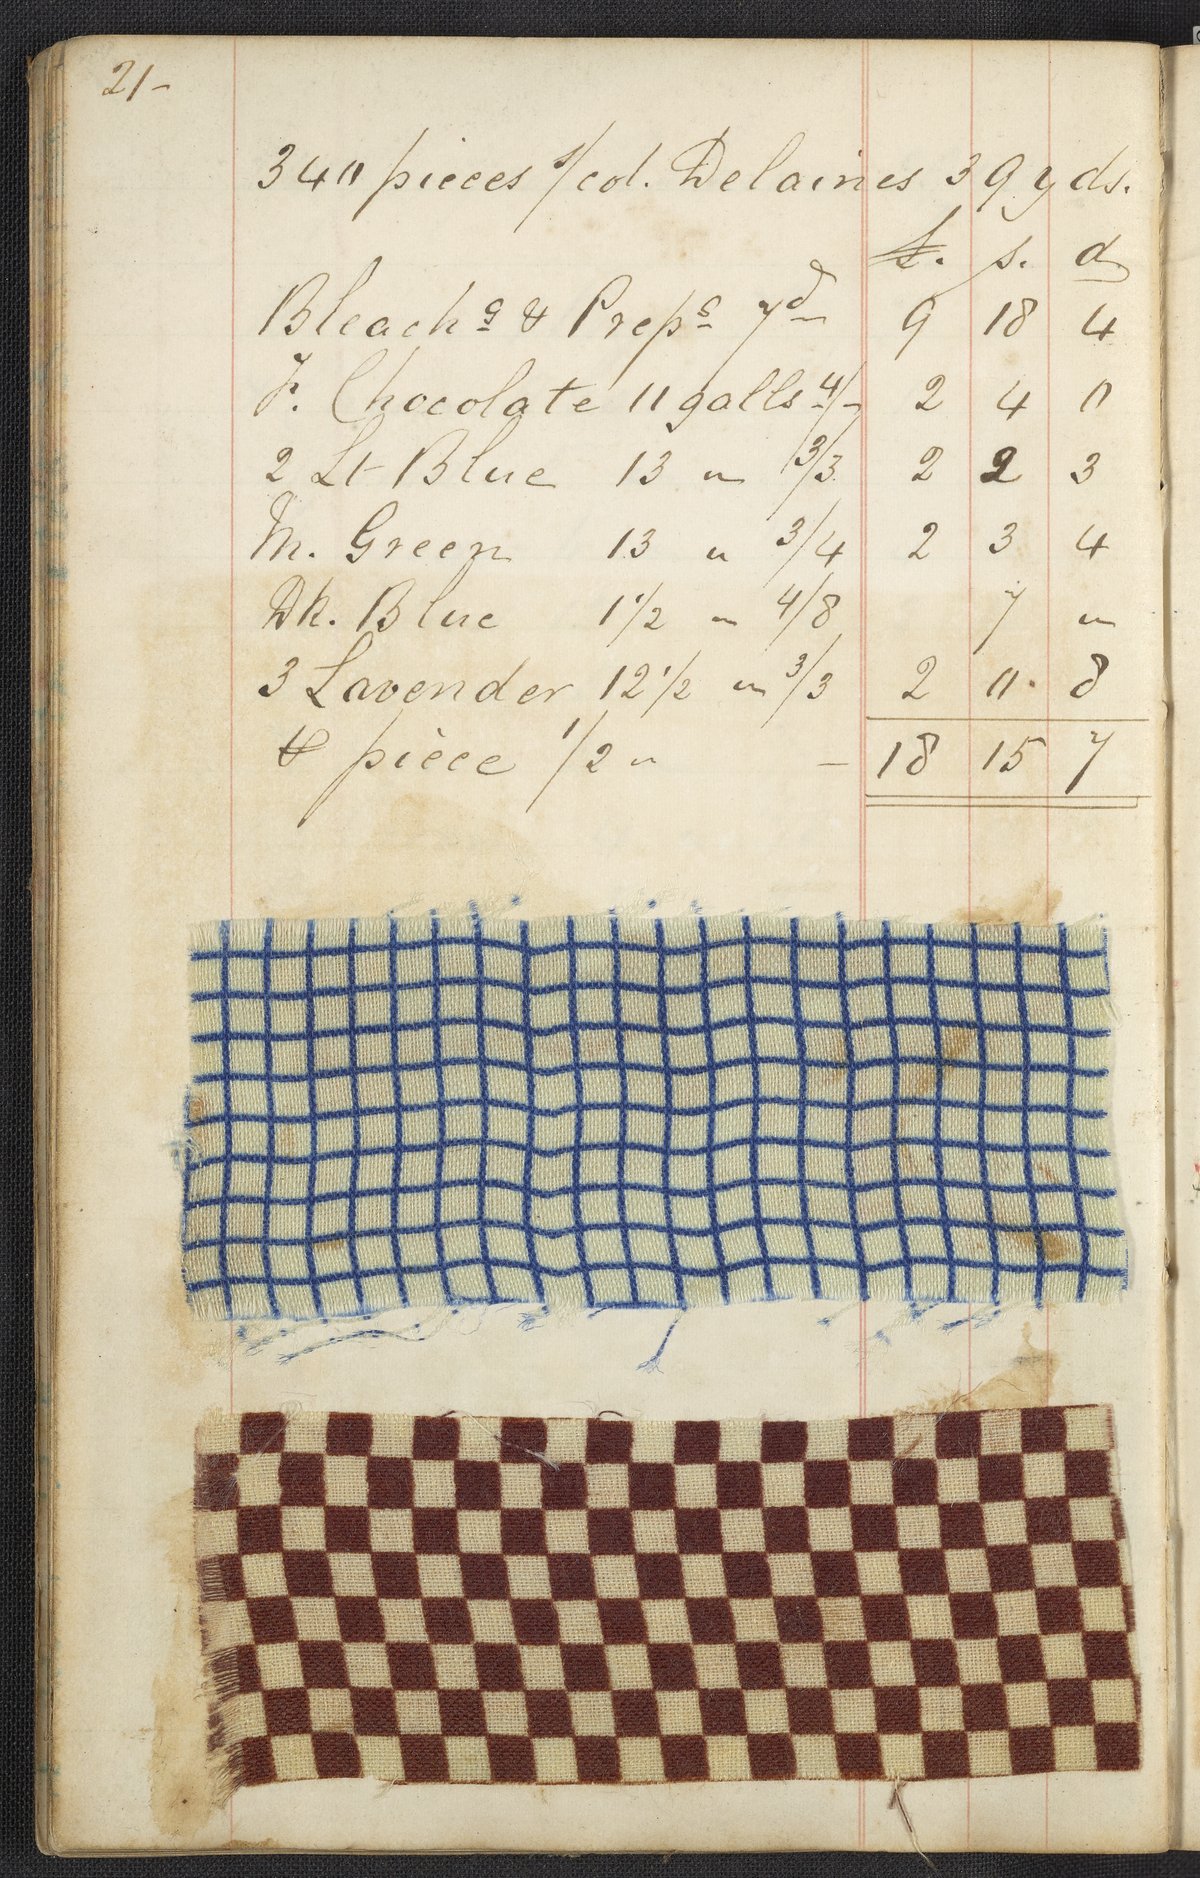 21-
340 pieces 1/col. Delaines 39 yds.
£. s. d
Bleachg & Preps 7d 9 18 4
F. Chocolate 11 galls 4/- 2 4 0
2 Lt Blue 13 " 3/3 2 2 3
M. Green 13 " 3/4 2 3 4
Dk. Blue 1 1/2 " 4/8 7 "
3 Lavender 12 1/2 " 3/3 2 0. 8
⅌ piece 1/2 " - 18 15 7